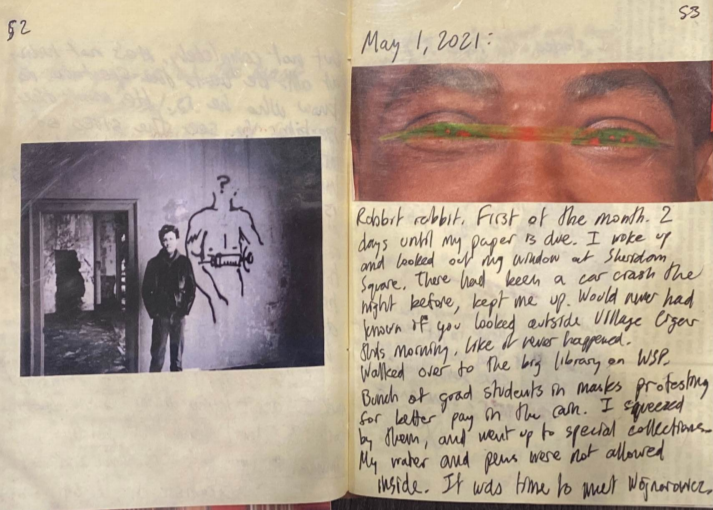 52
?
53
May 1, 2021:
Rabbit rabbit. First of the month. 2
days until my paper is due. I woke up
and looked out my window at Sheridan
Square. There had been a car crash the
night before, kept me up. Would never had
known if you looked outside Village Cigar
this morning, like it never happened.
Walked over to the big library on WSP.
Bunch of grad students in masks protesting
for better pay in the rain. I squeezed
by them, and went up to special collections.
My water and pens were not allowed
inside. It was time to meet Wojnarowicz.